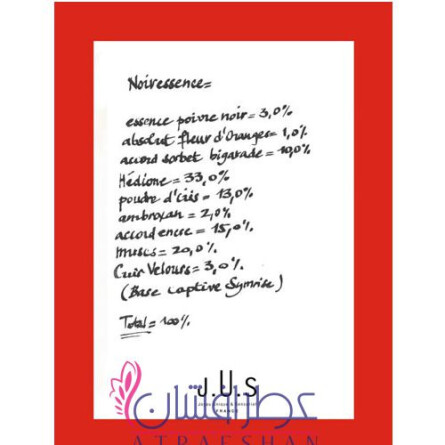 Noiressence=
essence poivre noir= 3,0%
absolut fleur d'Oranges= 1,0%
accord sorbet bigarade = 10,0%
Hédione = 33,0%
poudre d'iris = 13,0%
ambroxan = 2,0%
accord encre = 15,0%
muscs = 20,0%
Cuir Velours= 3,0%
(Base captive Symrise)
Total = 100%
J.U.S
FRANCE
عطرافشان
ATRAFSHAN